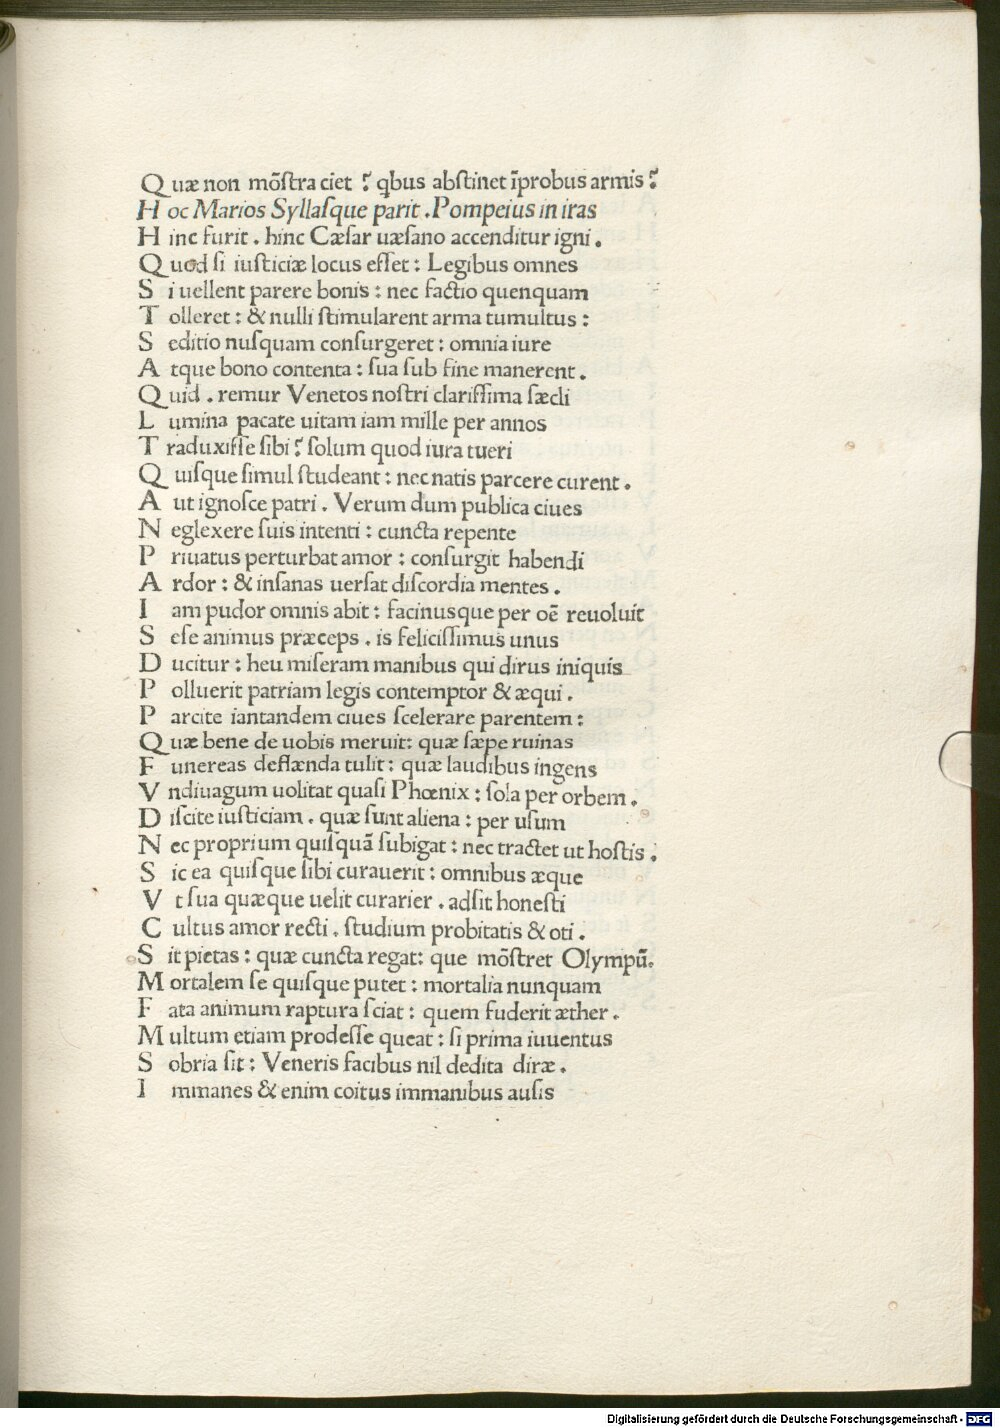 Quæ non mõſtra ciet ? qbus abſtinet ĩprobus armis ?
Hoc Marios Syllaſque parit . Pompeius in iras
Hinc furit . hinc Cæſar uæſano accenditur igni .
Quod ſi iuſticiæ locus eſſet : Legibus omnes
Si uellent parere bonis : nec factio quenquam
Tolleret : & nulli ſtimularent arma tumultus :
Seditio nuſquam conſurgeret : omnia iure
Atque bono contenta : ſua ſub fine manerent .
Quid . remur Venetos noſtri clariſſima ſæcli
Lumina pacate uitam iam mille per annos
Traduxiſſe ſibi ? ſolum quod iura tueri
Quiſque ſimul ſtudeant : nec natis parcere curent .
Aut ignoſce patri . Verum dum publica ciues
Neglexere ſuis intenti : cuncta repente
Priuatus perturbat amor : conſurgit habendi
Ardor : & inſanas uerſat diſcordia mentes .
Iam pudor omnis abit : facinusque per oẽ reuoluit
Seſe animus præceps . is feliciſſimus unus
Ducitur : heu miſeram manibus qui dirus iniquis
Polluerit patriam legis contemptor & æqui .
Parcite iantandem ciues ſcelerare parentem :
Quæ bene de uobis meruit: quæ ſæpe ruinas
Funereas deflænda tulit : quæ laudibus ingens
Vndiuagum uolitat quaſi Phœnix : ſola per orbem .
Diſcite iuſticiam . quæ ſunt aliena : per uſum
Nec proprium quiſquã ſubigat : nec tractet ut hoſtis .
Sic ea quiſque ſibi curauerit : omnibus æque
Vt ſua quæque uelit curarier . adſit honeſti
Cultus amor recti . ſtudium probitatis & oti .
Sit pietas : quæ cuncta regat: que mõſtret Olympũ.
Mortalem ſe quiſque putet : mortalia nunquam
Fata animum raptura ſciat : quem fuderit æther .
Multum etiam prodeſſe queat : ſi prima iuuentus
Sobria ſit : Veneris facibus nil dedita diræ .
Immanes & enim coitus immanibus auſis
Digitalisierung gefördert durch die Deutsche Forschungsgemeinschaft - DFG